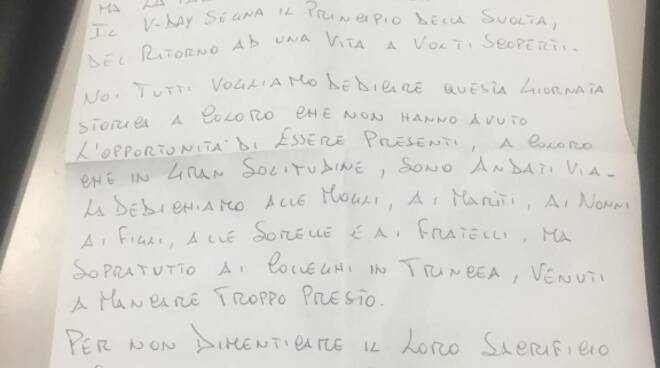 MA LA
IL V-DAY SEGNA IL PRINCIPIO DELLA SVOLTA,
DEL RITORNO AD UNA VITA A VOLTI SCOPERTI.
NOI TUTTI VOGLIAMO DEDICARE QUESTA GIORNATA
STORICA A COLORO CHE NON HANNO AVUTO
L'OPPORTUNITÀ DI ESSERE PRESENTI, A COLORO
CHE IN GRAN SOLITUDINE, SONO ANDATI VIA.
LA DEDICHIAMO ALLE MOGLI, AI MARITI, AI NONNI
AI FIGLI, ALLE SORELLE E AI FRATELLI, MA
SOPRATUTTO AI COLLEGHI IN TRINCEA, VENUTI
A MANCARE TROPPO PRESTO.
PER NON DIMENTICARE IL LORO SACRIFICIO